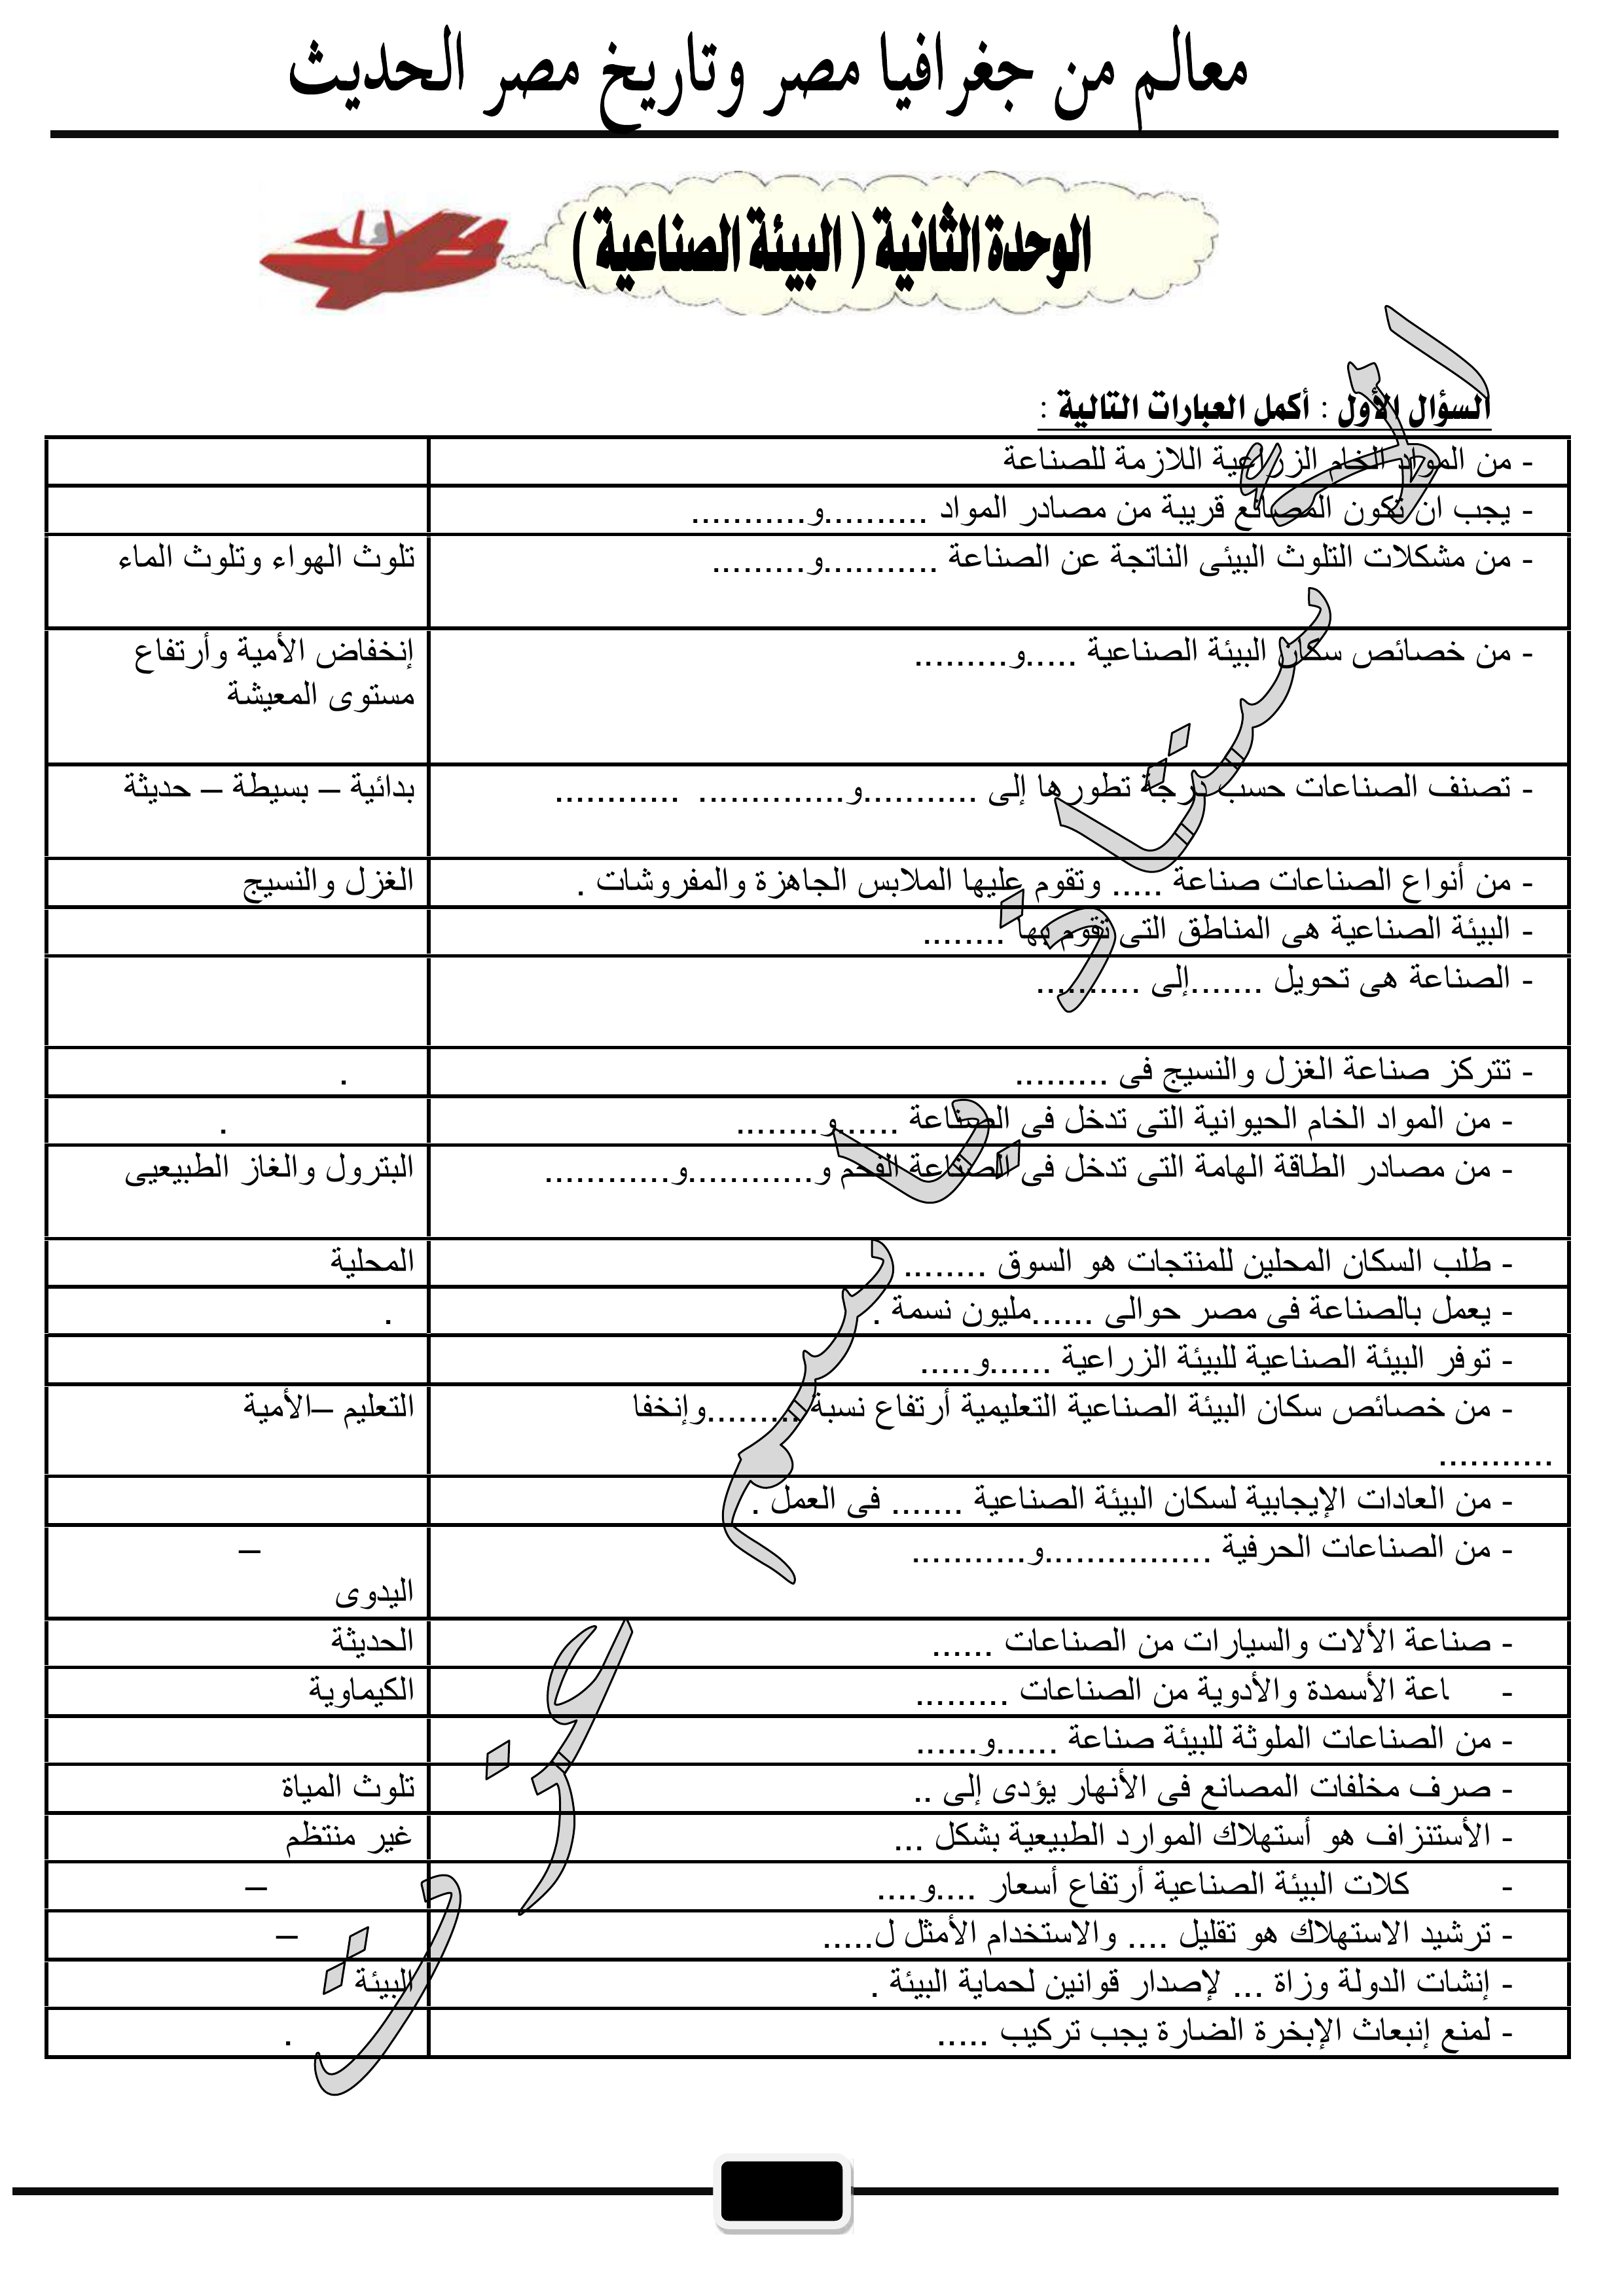 معالم من جغرافيا مصر وتاريخ مصر الحديث
الوحدة الثانية ( البيئة الصناعية )
السؤال الأول : أكمل العبارات التالية :
- من المواد الخام الزراعية اللازمة للصناعة
- يجب ان تكون المصانع قريبة من مصادر المواد ..........و...........
- من مشكلات التلوث البيئى الناتجة عن الصناعة ...........و......... تلوث الهواء وتلوث الماء
- من خصائص سكان البيئة الصناعية .....و......... إنخفاض الأمية وأرتفاع
مستوى المعيشة
- تصنف الصناعات حسب درجة تطورها إلى ...........و.............. ............ بدائية – بسيطة – حديثة
- من أنواع الصناعات صناعة ..... وتقوم عليها الملابس الجاهزة والمفروشات . الغزل والنسيج
- البيئة الصناعية هى المناطق التى تقوم بها ........
- الصناعة هى تحويل .......إلى ..........
- تتركز صناعة الغزل والنسيج فى ......... .
- من المواد الخام الحيوانية التى تدخل فى الصناعة ......و........ .
- من مصادر الطاقة الهامة التى تدخل فى الصناعة الفحم و............و............ البترول والغاز الطبيعيى
- طلب السكان المحلين للمنتجات هو السوق ........ المحلية
- يعمل بالصناعة فى مصر حوالى ......مليون نسمة . .
- توفر البيئة الصناعية للبيئة الزراعية ......و.....
- من خصائص سكان البيئة الصناعية التعليمية أرتفاع نسبة .........وإنخفا التعليم –الأمية
...........
- من العادات الإيجابية لسكان البيئة الصناعية ....... فى العمل .
- من الصناعات الحرفية ................و........... –
اليدوى
- صناعة الألات والسيارات من الصناعات ...... الحديثة
- اعة الأسمدة والأدوية من الصناعات ......... الكيماوية
- من الصناعات الملوثة للبيئة صناعة ......و......
- صرف مخلفات المصانع فى الأنهار يؤدى إلى .. تلوث المياة
- الأستنزاف هو أستهلاك الموارد الطبيعية بشكل ... غير منتظم
- كلات البيئة الصناعية أرتفاع أسعار ....و.... –
- ترشيد الاستهلاك هو تقليل .... والاستخدام الأمثل ل..... –
- إنشات الدولة وزاة ... لإصدار قوانين لحماية البيئة . البيئة
- لمنع إنبعاث الإبخرة الضارة يجب تركيب ..... .